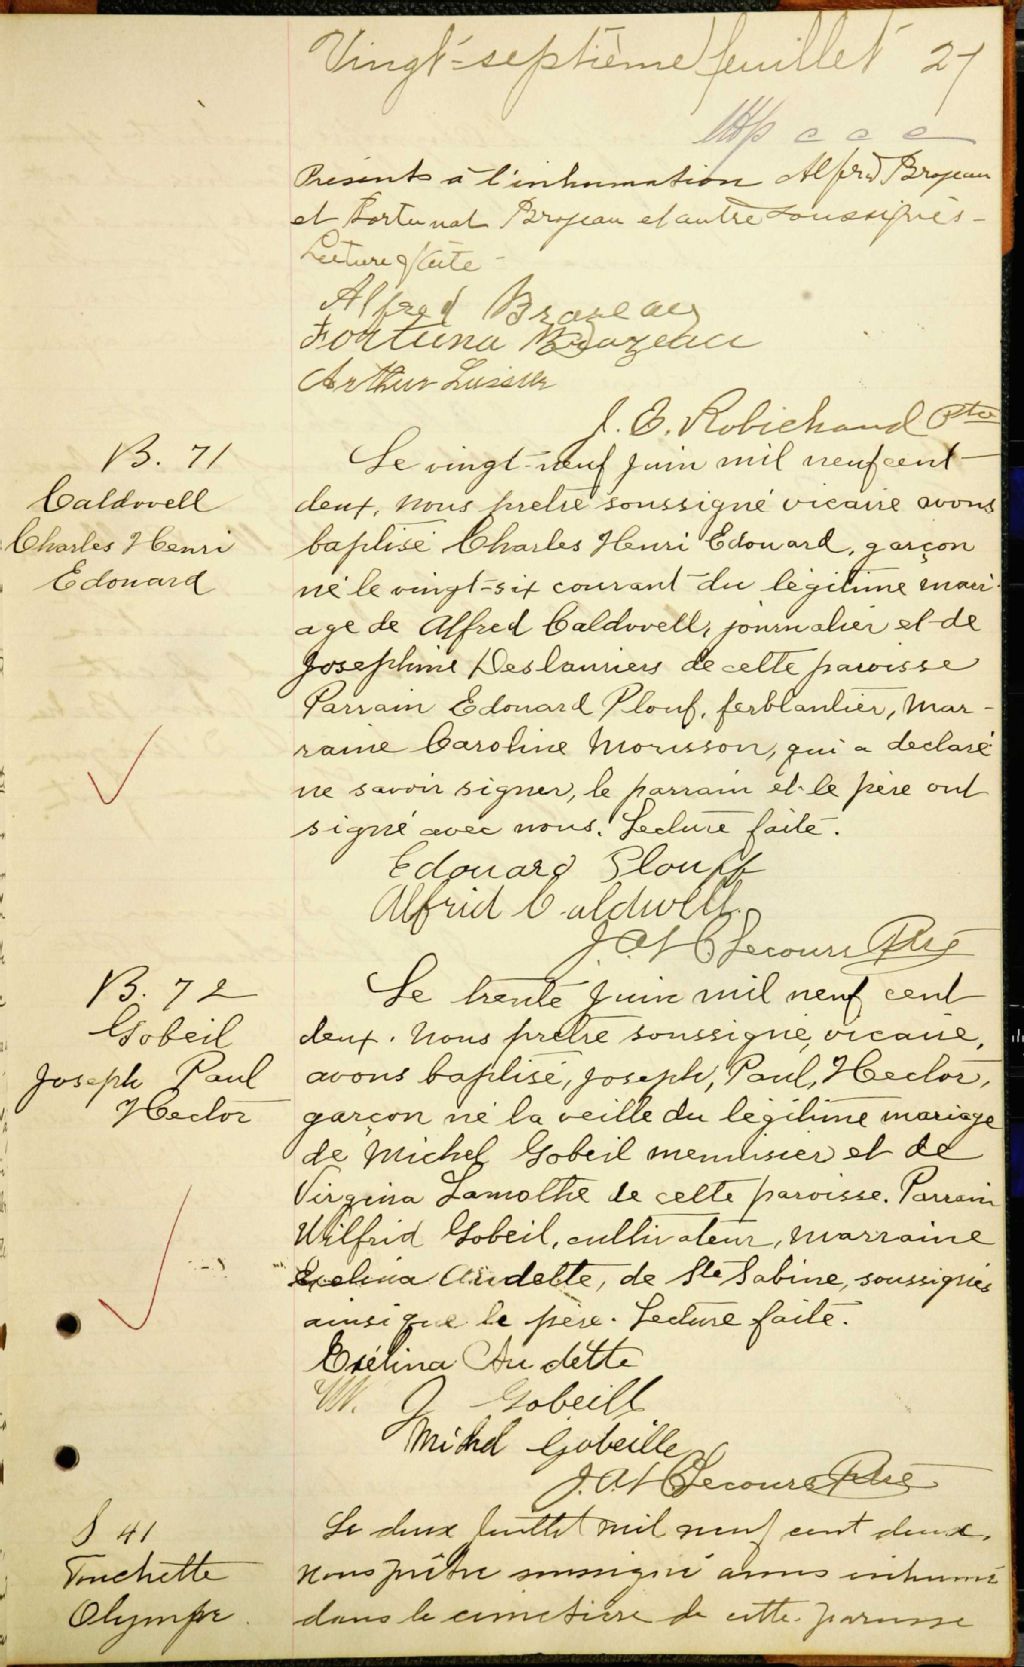 Vingt-septième feuillet 27
Présents à l'inhumation Alfred Brojeau
et Fortunat Brojeau et autre soussignés -
Lecture faite -
Alfred Brazeau
Fortuna Brazeau
Arthur Lussier
J. E. Robichaud Ptre
B. 71
Caldwell
Charles Henri
Edouard
Le vingt-neuf juin mil neuf cent
deux, nous prêtre soussigné vicaire avons
baptisé Charles Henri Edouard, garçon
né le vingt-six courant du légitime mari-
age de Alfred Caldwell, journalier et de
Josephine Deslauriers de cette paroisse
Parrain Edouard Plouf, ferblantier, mar-
raine Caroline Morisson, qui a declaré
ne savoir signer, le parrain et le père ont
signé avec nous. Lecture faite.
Edouard Plouff
Alfrid Caldwell
Lecours Ptre
B. 72
Gobeil
Joseph Paul
Hector
Le trente juin mil neuf cent
deux. Nous prêtre soussigné, vicaire,
avons baptisé, Joseph, Paul, Hector,
garçon né la veille du légitime mariage
de Michel Gobeil menuisier et de
Virgina Lamothe de cette paroisse. Parrain
Wilfrid Gobeil, cultivateur, marraine
Exelina Audette, de Ste Sabine, soussignés
ainsi que le père. Lecture faite.
Exélina Audette
W. J Gobeill
Michel Gobeille
Lecours Ptre
S 41
Touchette
Olympe.
Le deux Juillet mil neuf cent deux,
nous prêtre soussigné avons inhumé
dans le cimetière de cette paroisse